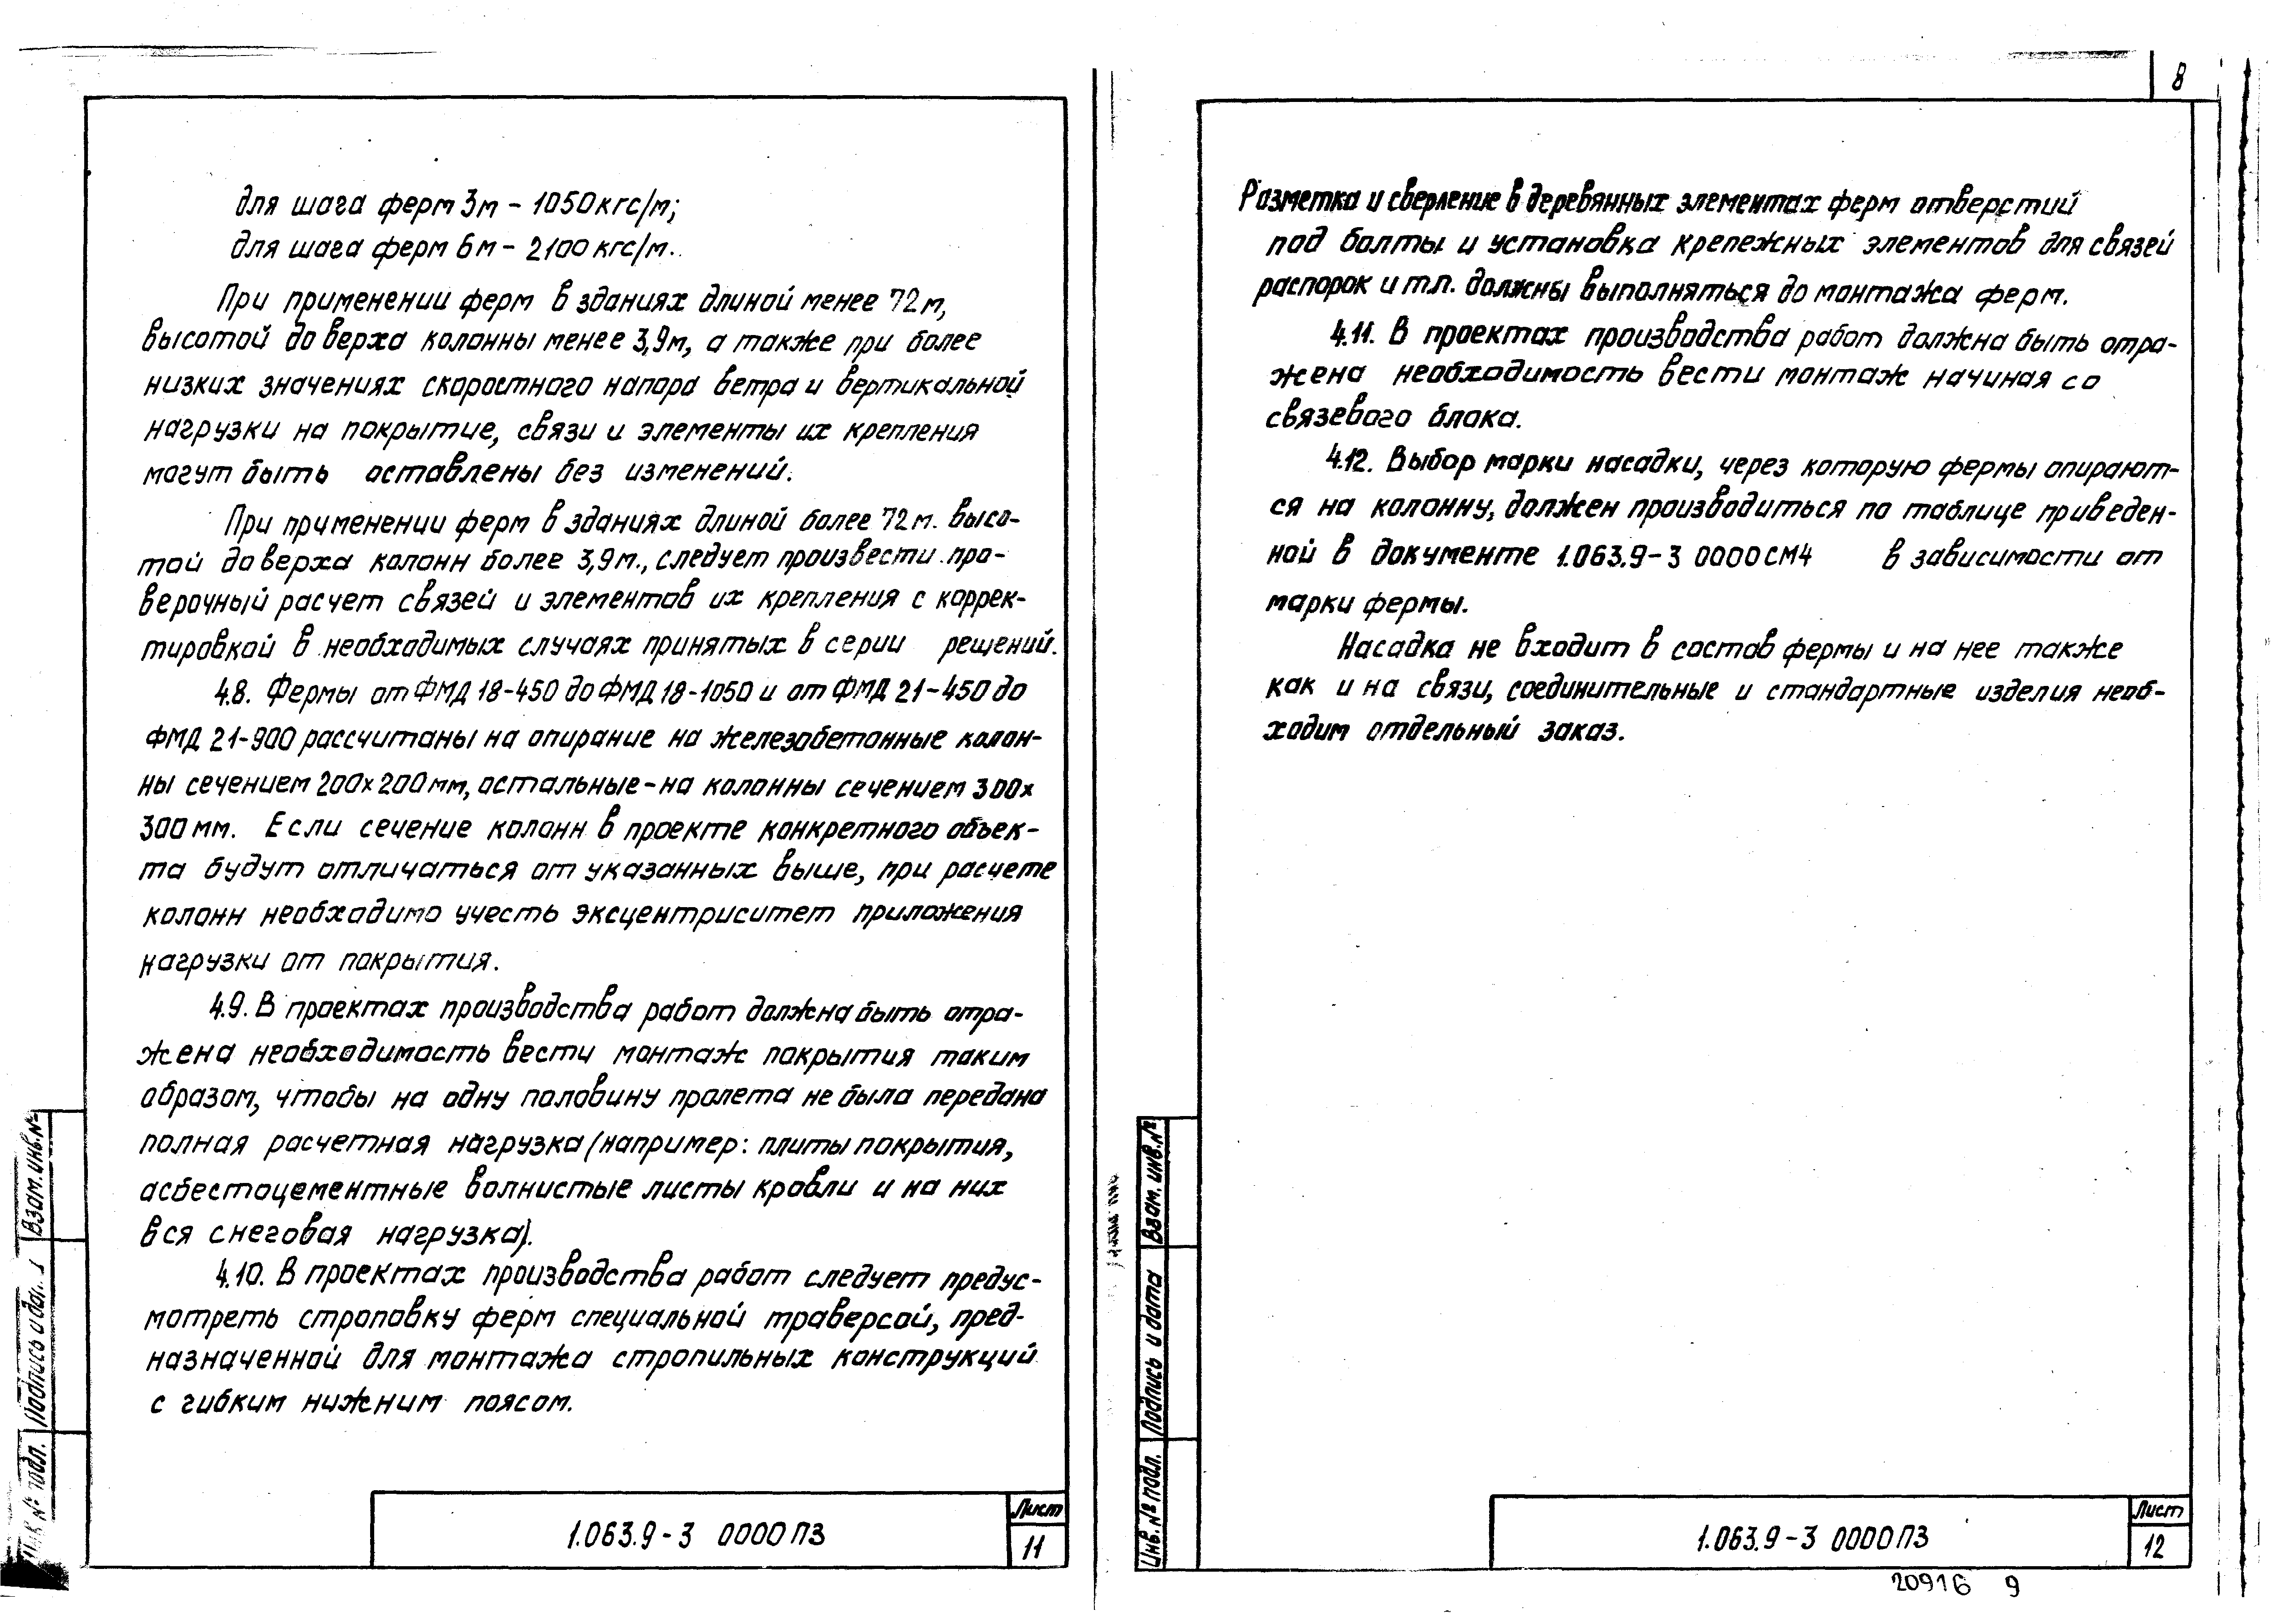 для шага ферм 3м – 1050кгс/м;
для шага ферм 6м – 2100кгс/м.
При применении ферм в зданиях длиной менее 72м,
высотой до верха колонны менее 3,9м, а также при более
низких значениях скоростного напора ветра и вертикальной
нагрузки на покрытие, связи и элементы их крепления
могут быть оставлены без изменений.
При применении ферм в зданиях длиной более 72м. высо-
той до верха колонн более 3,9м., следует произвести про-
верочный расчет связей и элементов их крепления с коррек-
тировкой в необходимых случаях принятых в серии решений.
4.8. Фермы от ФМД 18-450 до ФМД 18-1050 и от ФМД 21-450 до
ФМД 21-900 рассчитаны на опирание на железобетонные колон-
ны сечением 200х200мм, остальные – на колонны сечением 300х
300мм. Если сечение колонн в проекте конкретного объек-
та будут отличаться от указанных выше, при расчете
колонн необходимо учесть эксцентриситет приложения
нагрузки от покрытия.
4.9. В проектах производства работ должна быть отра-
жена необходимость вести монтаж покрытия таким
образом, чтобы на одну половину пролета не была передана
полная расчетная нагрузка (например: плиты покрытия,
асбестоцементные волнистые листы кровли и на них
вся снеговая нагрузка).
4.10. В проектах производства работ следует предус-
мотреть строповку ферм специальной траверсой, пред-
назначенной для монтажа стропильных конструкций
с гибким нижним поясом.
Взам. инв. №
Подпись и да
Инв № подл.
1.063.9-3 0000ПЗ
Лист
11
8
Разметка и сверление в деревянных элементах ферм отверстий
под болты и установка крепежных элементов для связей
распорок и т.п. должны выполняться до монтажа ферм.
4.11. В проектах производства работ должна быть отра-
жена необходимость вести монтаж начиная со
связевого блока.
4.12. Выбор марки насадки, через которую фермы опирают-
ся на колонну, должен производиться по таблице приведен-
ной в документе 1.063.9-3 0000СМ4 в зависимости от
марки фермы.
Насадка не входит в состав фермы и на нее также
как и на связи, соединительные и стандартные изделия необ-
ходим отдельный заказ.
Взам. инв. №
Подпись и дата
Инв. № подл.
1.063.9-3 0000ПЗ
Лист
12
20916 9